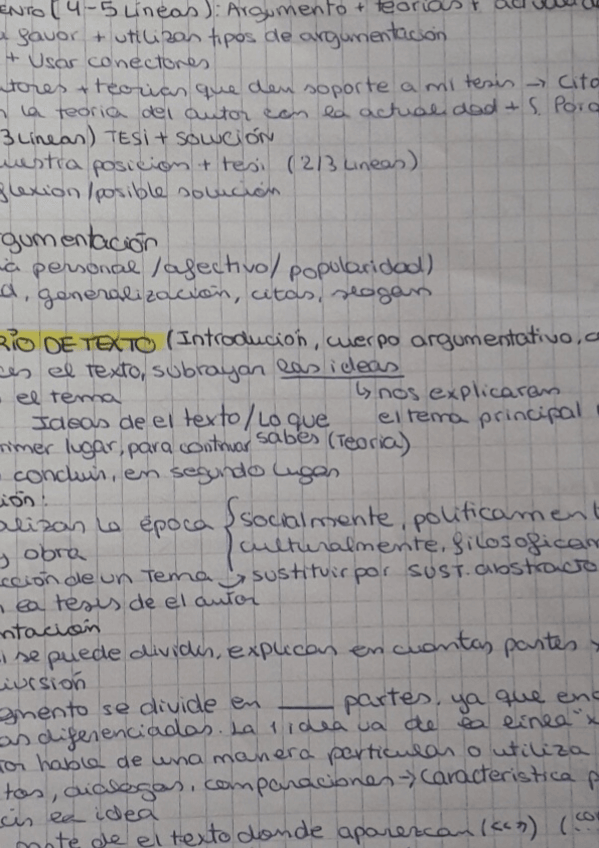 ENTO (4-5 Líneas): Argumento + teorías +
a favor + utilizan tipos de argumentación
+ Usar conectores
tores + teorías que den soporte a mi tesis → Cita
n la teoría del autor con la actualidad + S. Para
3 Líneas) TESI + SOLUCIÓN
uestra posicion + tesi. (2/3 Líneas)
flexion/posible solución
gumentación
a personal /afectivo/ popularidad)
d, generalización, citas, slogan
RIO DE TEXTO (Introdución, cuerpo argumentativo, c
es el texto, subrayan las ideas
el tema ↳ nos explicaran
Ideas de el texto/Lo que el tema principal
rimer lugar, para continuar sabes (Teoría)
concluir, en segundo lugar
ión:
alizan la época { socialmente, politicament
y obra culturalmente, filosoficam
cción de un Tema → sustituir por SUST. abstracto
la tesis de el autor
ntacion
se puede dividir, explican en cuantas partes y
ivisión
gmento se divide en ___ partes, ya que en
as diferenciadas. La 1 idea va de la linea "x
or habla de una manera particular o utiliza
tos, dialogos, comparaciones → caracteristica p
la idea
parte de el texto donde aparezcan (<<>>) (